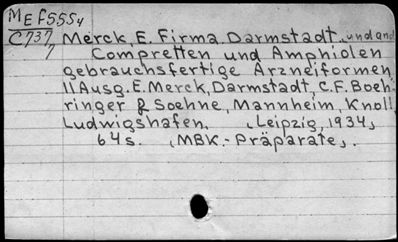 MEF555y
C737 Merck, E. Firma, Darmstadt, und and
7 Compretten und Amphiolen
gebrauchsfertige Arzneiformen,
11 Ausg. E. Merck, Darmstadt, C.F. Boeh-
ringer & Soehne, Mannheim, Knoll,
Ludwigshafen. Leipzig, 1934,
64s. (MBK.-Präparate).